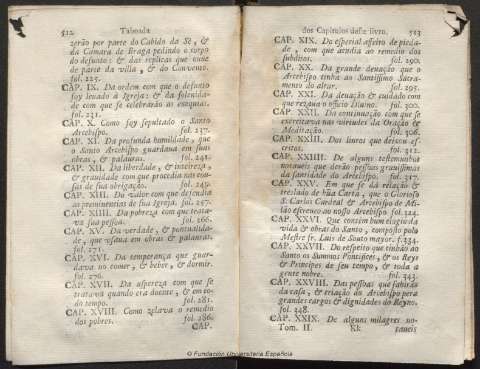 512 Taboada
zerão por parte do Cabido da Sè, &
da Camara de Braga pedindo o corpo
do defunto: & das replicas que ouue
de parte da villa, & do Convento.
fol. 225.
CAP. IX. Da ordem com que o defunto
foy levado à Igreja: & da solenida-
de com que se celebrarão as exequias.
fol. 231.
CAP. X. Como foy sepultado o Santo
Arcebispo. fol. 237.
CAP. XI. Da profunda humildade, que
o Santo Arcebispo guardava em suas
obras, & palauras. fol. 241.
CAP. XII. Da liberdade, & inteireza,
& grauidade com que procedia nas cou-
sas de sua obrigação. fol. 249.
CAP. XIII. Do valor com que defendia
as preminencias de sua Igreja. fol. 257.
CAP. XIIII. Da pobreza com que trata-
va sua pessoa. fol. 266.
CAP. XV. Da verdade, & pontualida-
de, que usaua em obras & palauras.
fol. 271.
CAP. XVI. Da temperança que guar-
dava no comer, & beber, & dormir.
fol. 276.
CAP. XVII. Da aspereza com que se
tratava quando era doente, & em to-
do tempo. fol. 281.
CAP. XVIII. Como zelava o remedio
dos pobres. fol. 286.
CAP.
dos Capitulos deste livro. 513
CAP. XIX. Do especial affeito de pieda-
de, com que acudia ao remedio dos
subditos. fol. 290.
CAP. XX. Da grande deuação que o
Arcebispo tinha ao Santissimo Sacra-
mento do altar. fol. 295.
CAP. XXI. Da deuação & cuidado com
que rezaua o officio Diuino. fol. 300.
CAP. XXII. Da continuação com que se
exercitava nas virtudes da Oração &
Meditação. fol. 306.
CAP. XXIII. Dos livros que deixou es-
critos. fol. 312.
CAP. XXIIII. De alguns testemunhos
notaueis que derão pessoas grauissimas
da santidade do Arcebispo. fol. 317.
CAP. XXV. Em que se dà relação &
treslado de hũa Carta, que o Glorioso
S. Carlos Cardeal & Arcebispo de Mi-
lão escreueo ao nosso Arcebispo fol. 324.
CAP. XXVI. Que contèm hum elogio da
vida & obras do Santo, composto polo
Mestre fr. Luis de Souto mayor. f. 334.
CAP. XXVII. Do respeito que tinhão ao
Santo os Summos Pontifices, & os Reys
& Principes de seu tempo, & toda a
gente nobre. fol. 343.
CAP. XXVIII. Das pessoas que sahirão
da casa, & criação do Arcebispo pera
grandes cargos & dignidades do Reyno.
fol. 348.
CAP. XXIX. De alguns milagres no-
Tom. II. Kk taueis
© Fundación Universitaria Española